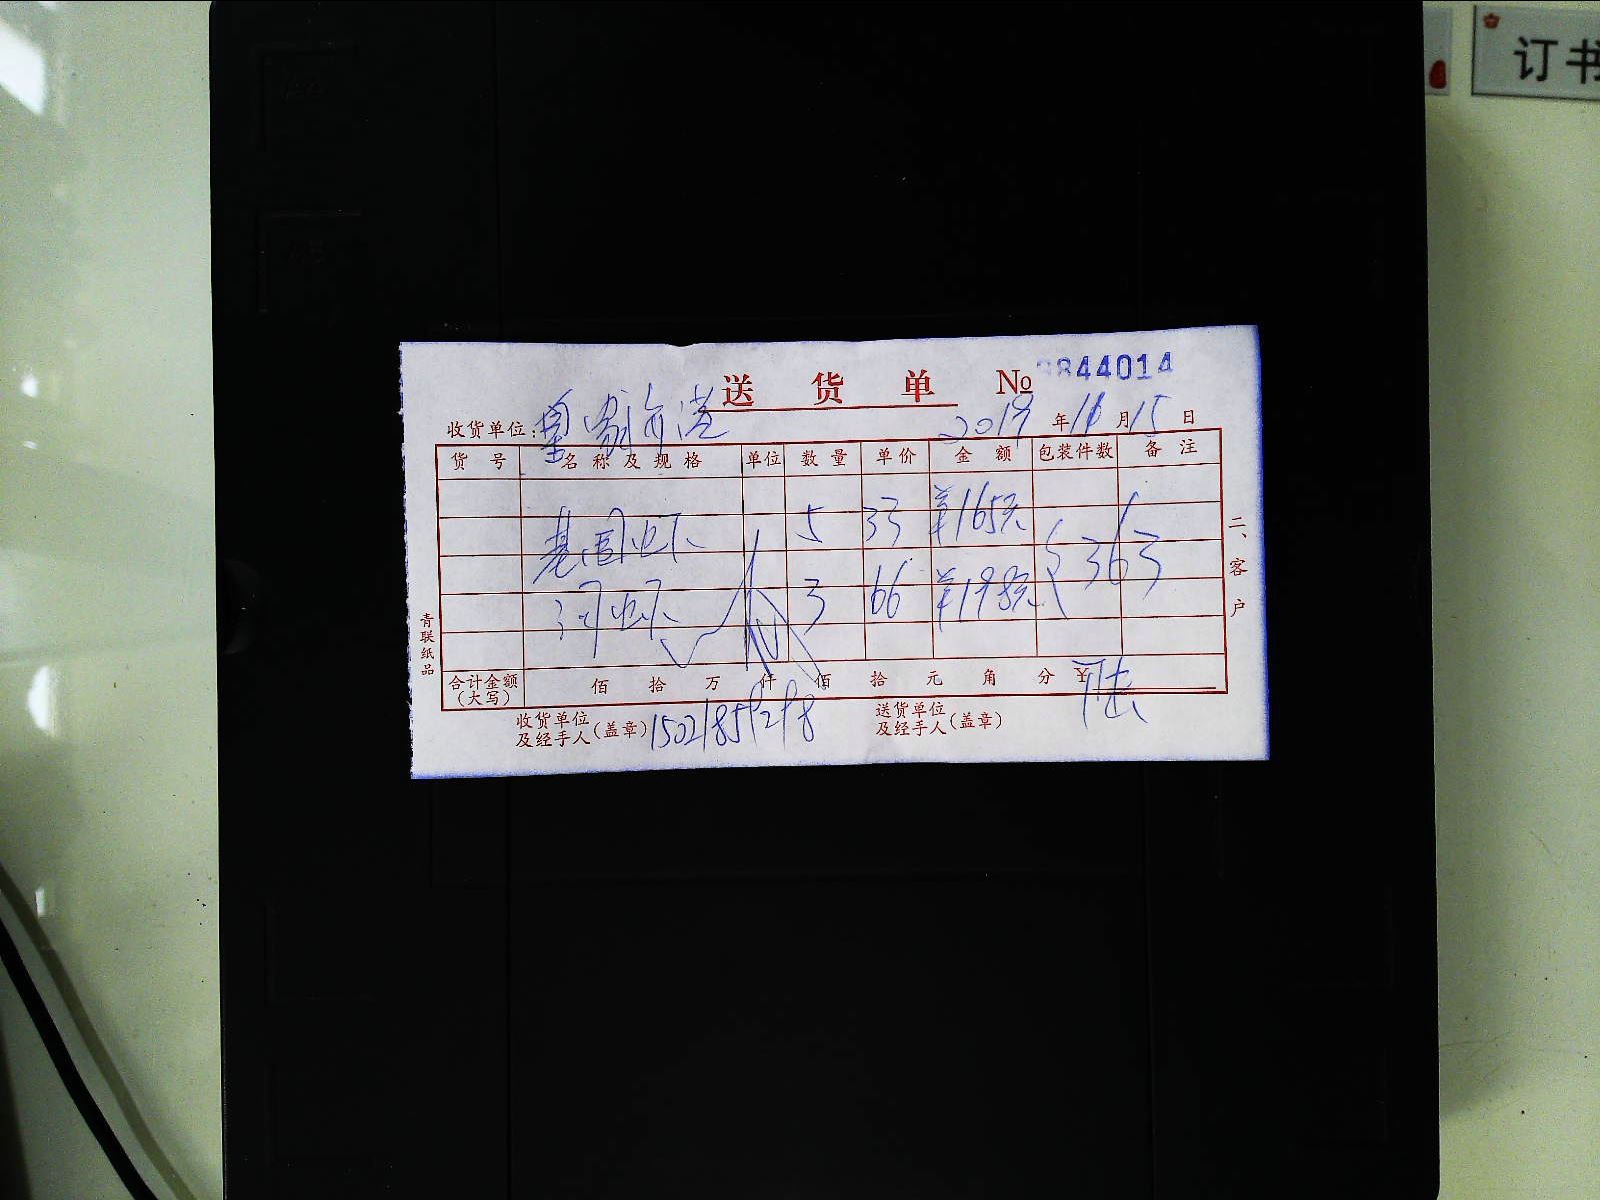 订书
送货单 No 9844014
收货单位: 皇家 港 2019年11月15日
货号 名称及规格 单位 数量 单价 金额 包装件数 备注
基围虾 5 33 ¥165元
363
河虾 3 66 ¥198元
合计金额(大写) 佰 拾 万 仟 佰 拾 元 角 分 ¥
收货单位及经手人(盖章) 送货单位及经手人(盖章)
二、客户
青联纸品